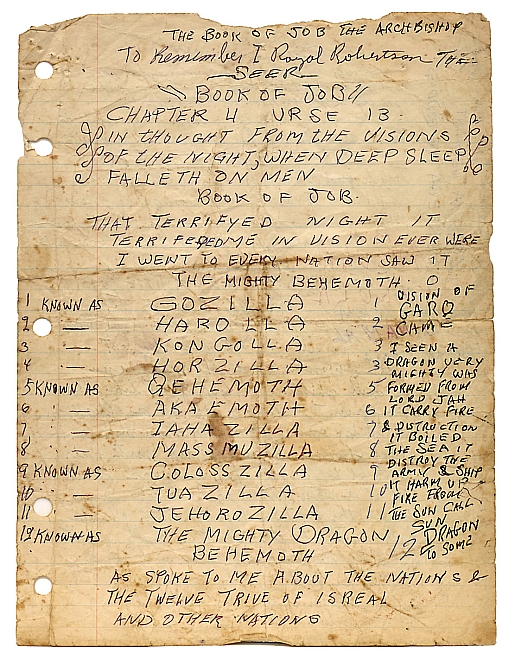 THE BOOK OF JOB THE ARCHBISHOP
To Remember I Royal Robertson The
SEER
BOOK OF JOB
CHAPTER 4 VRSE 13.
IN THOUGHT FROM THE VISIONS
OF THE NIGHT, WHEN DEEP SLEEP
FALLETH ON MEN
BOOK OF JOB.
THAT TERRIFYED NIGHT IT
ME IN VISION EVERWERE
I WENT TO EVERY NATION SAW IT
THE MIGHTY BEHEMOTH.
1 KNOWN AS GOZILLA 1 VISION OF
2 — HARO LLA 2 CAME
3 KONGOLLA 3 I SEEN A
4 — HORZILLA 3 DRAGON VERY
MIGHTY WAS
5 KNOWN AS GEHEMOTH 5 FORMED FROM
LORD JAH
6 — AKA EMOTH 6 IT CARY FIRE
7 — IAHAZILLA 7 & DISTRUCTION
IT BOILED
8 — MASSMUZILLA 8 THE SEA IT
DISTROY THE
9 KNOWN AS COLOSSZILLA 9 ARMY & SHIP
10 — TUAZILLA 10 IT HARM UP
FIRE FROM
11 — JEHOROZILLA 11 THE SUN CALL
SUN
12 KNOWN AS THE MIGHTY DRAGON 12 DRAGON
BEHEMOTH TO SOME
AS SPOKE TO ME ABOUT THE NATIONS &
THE TWELVE TRIVE OF ISREAL
AND OTHER NATIONS